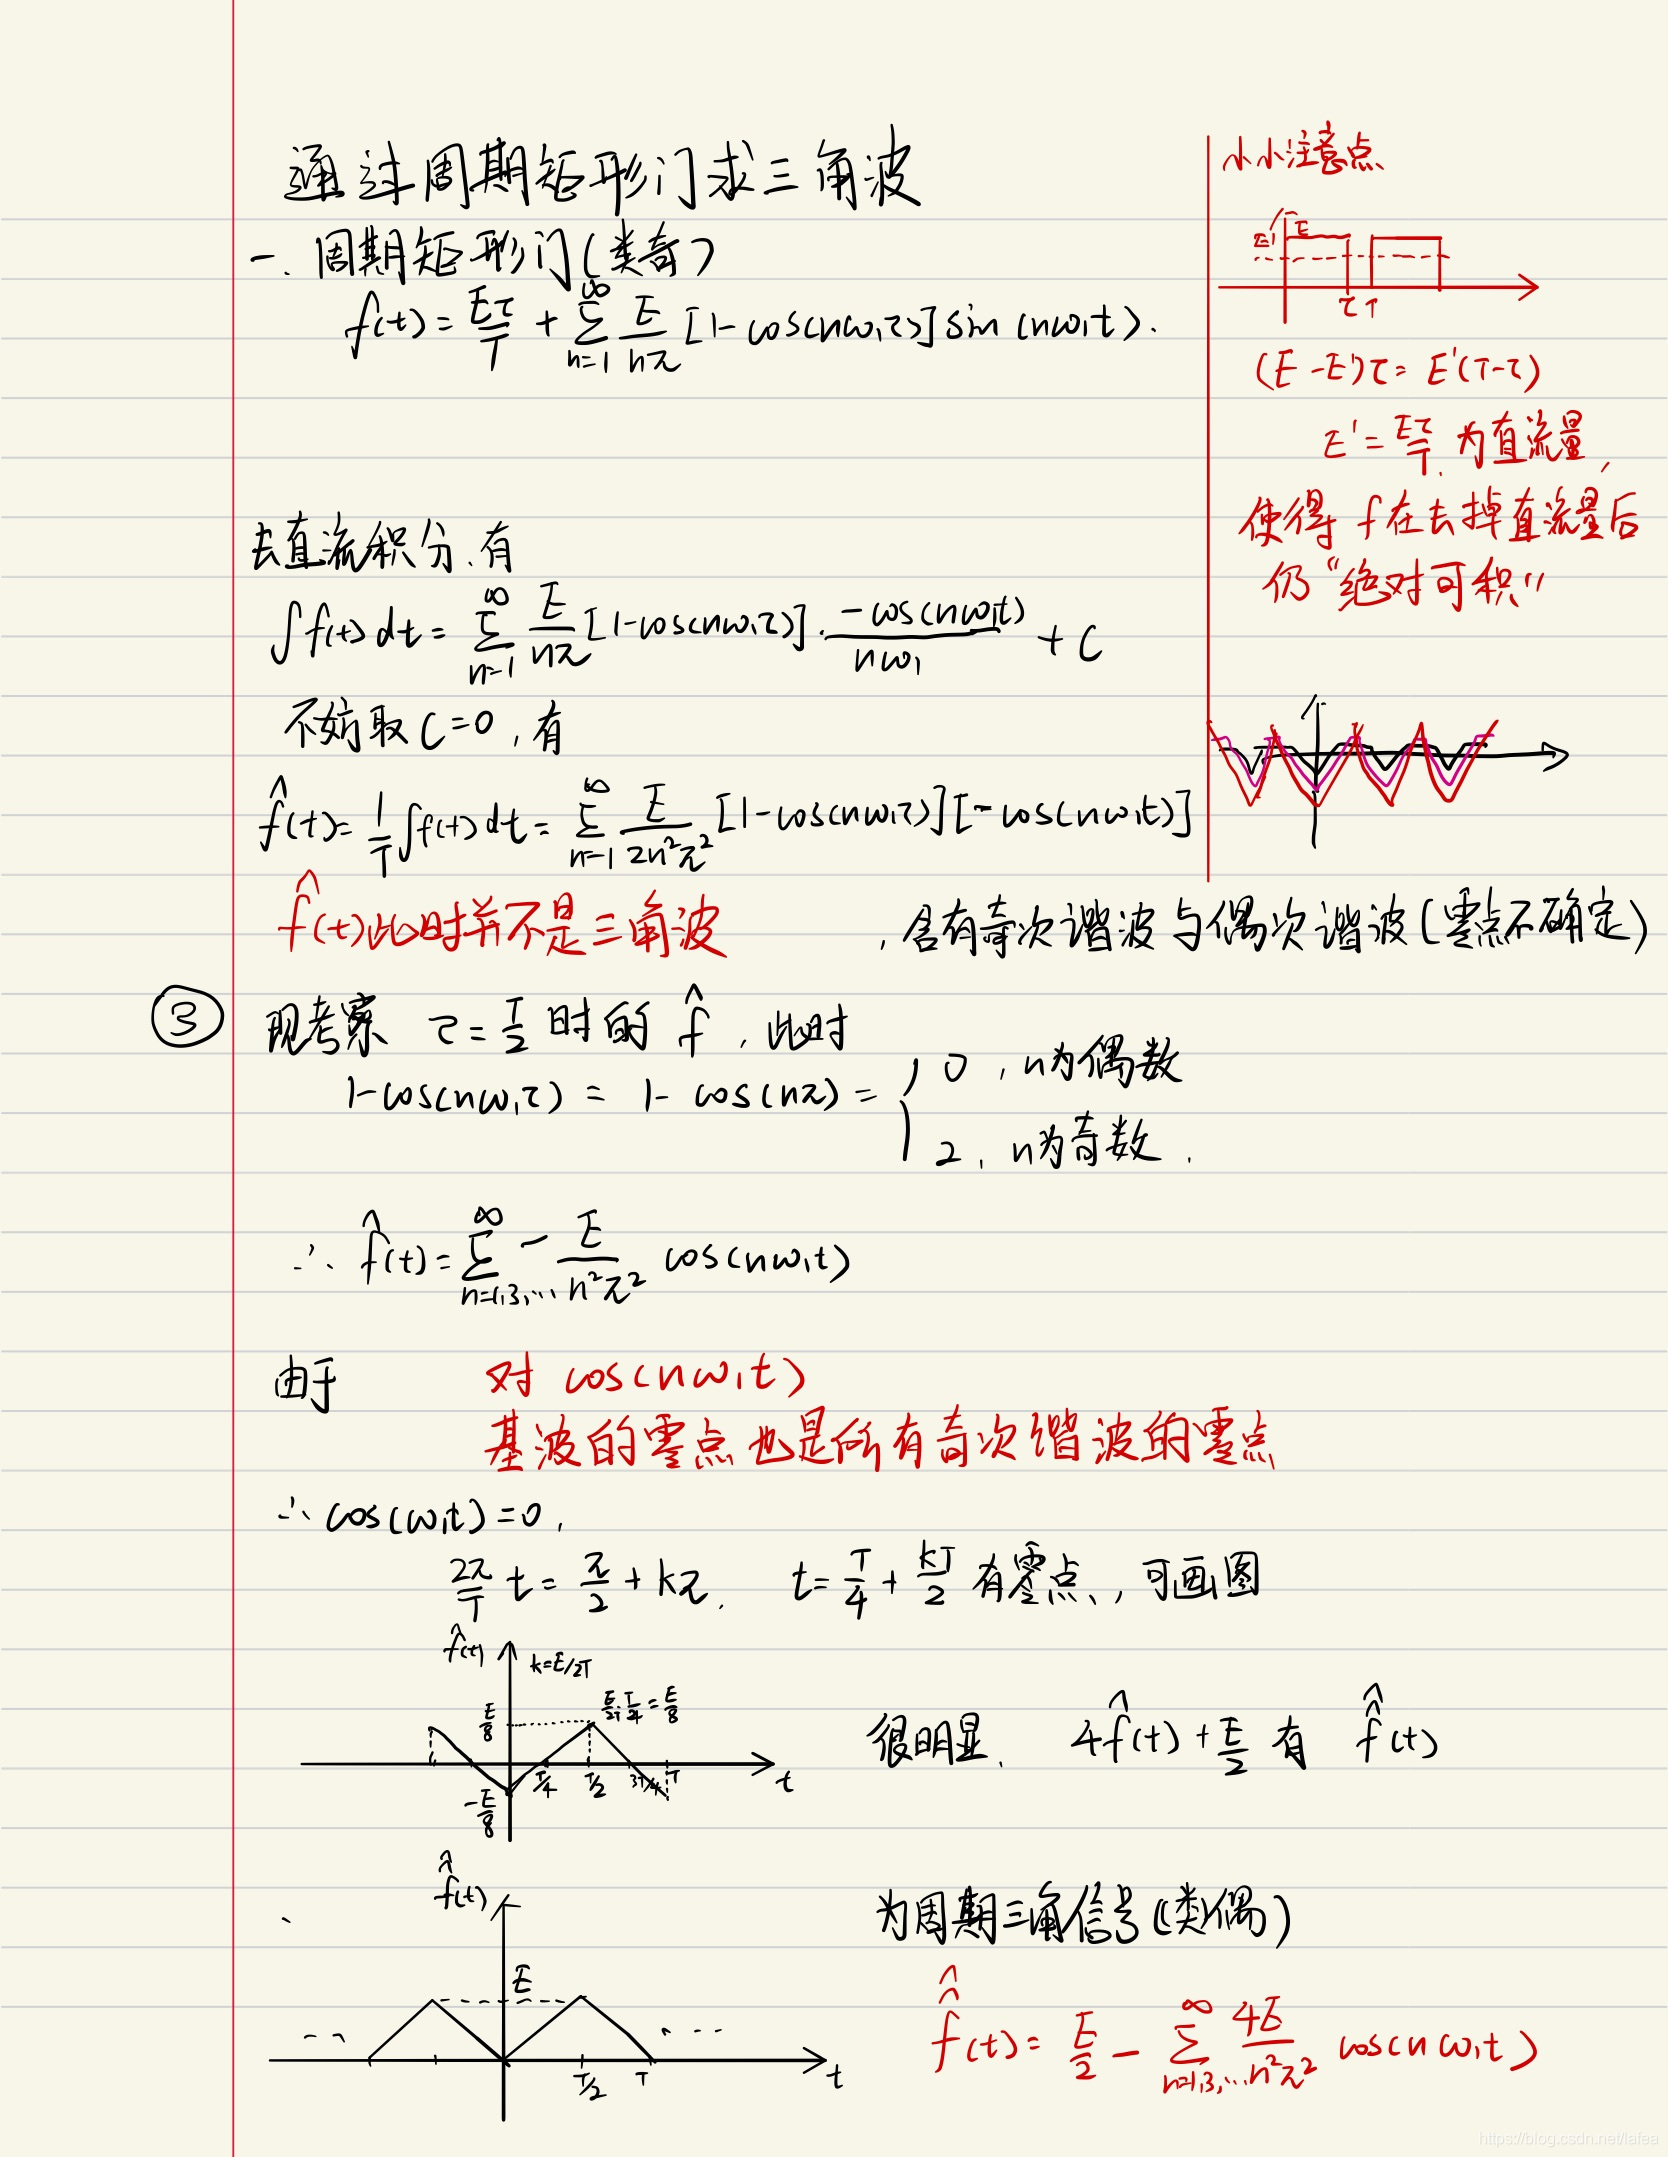 通过周期矩形门求三角波
一. 周期矩形门(类奇)
f(t) = Eτ/T + ∑_{n=1}^{∞} E/nπ [1-cos(nω₁τ)] sin(nω₁t).
小小注意点
E
τ T
(E-E')τ = E'(T-τ)
E' = Eτ/T. 为直流量,
使得 f 在去掉直流量后
仍"绝对可积"
去直流积分,有
∫f(t)dt = ∑_{n=1}^{∞} E/nπ [1-cos(nω₁τ)]·-cos(nω₁t)/nω₁ + C
不妨取 C=0, 有
f̂(t) = 1/T ∫f(t)dt = ∑_{n=1}^{∞} E/2n²π² [1-cos(nω₁τ)][-cos(nω₁t)]
f̂(t)此时并不是三角波 ,含有奇次谐波与偶次谐波(零点不确定)
③ 现考察 τ = T/2 时的 f̂, 此时
1-cos(nω₁τ) = 1-cos(nπ) = { 0, n为偶数
2, n为奇数.
∴ f̂(t) = ∑_{n=1,3,…}^{∞} -E/n²π² cos(nω₁t)
由于 对 cos(nω₁t)
基波的零点也是所有奇次谐波的零点
∴ cos(ω₁t)=0,
2π/T t = π/2 + kπ, t = T/4 + kT/2 有零点,可画图
f̂(t) k=E/2T
E/8 E/2T·T/4 = E/8
T/4 T/2 3T/4 T t
-E/8
很明显, 4f̂(t) + E/2 有 f̂̂(t)
f̂̂(t)
E
T/2 T t
为周期三角信号(类偶)
f̂̂(t) = E/2 - ∑_{n=1,3,…}^{∞} 4E/n²π² cos(nω₁t)
https://blog.csdn.net/lafea